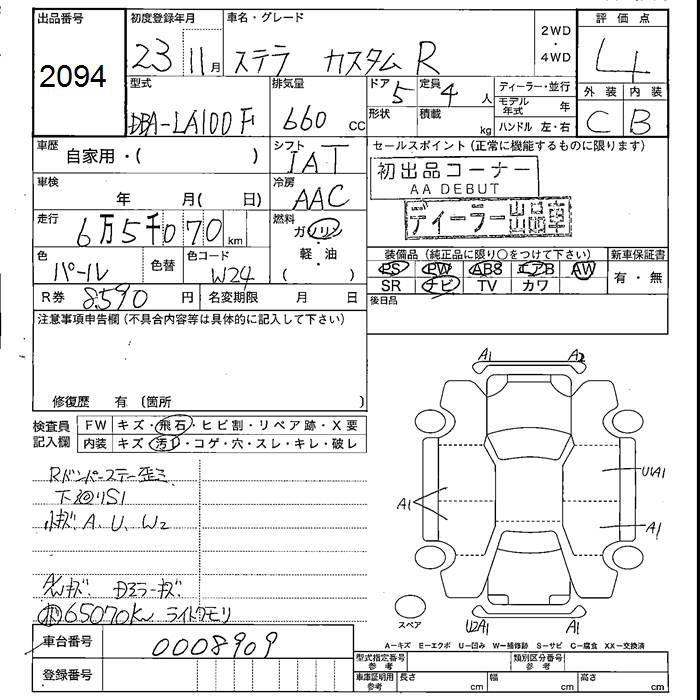 出品番号
2094
初度登録年月
23 11月
車名・グレード
ステラ カスタム R
2WD
・
4WD
評価点
4
型式
DBA-LA100F
排気量
660 cc
ドア
5
定員
4 人
形状
積載
kg
ディーラー・並行
モデル年式 年
ハンドル 左・右
外装 内装
C B
車歴
自家用・( )
シフト
IAT
セールスポイント(正常に機能するものに限ります)
初出品コーナー
AA DEBUT
車検
年 月( 日)
冷房
AAC
走行
6万5千070 km
燃料
ガソリン
・
軽・油
( )
色
パール
色替
色コード
W24
装備品(純正品に限り○をつけて下さい)
PS PW ABS エアB AW
SR ナビ TV カワ
新車保証書
有・無
R券 8590 円
名変期限 月 日
後日品
注意事項申告欄(不具合内容等は具体的に記入して下さい)
修復歴 有(箇所 )
検査員
記入欄
FW キズ・飛石・ヒビ割・リペア跡・X要
内装 キズ・汚れ・コゲ・穴・スレ・キレ・破レ
下廻りS1
小キズ A、U、W2
65070km ライトクモリ
A1 A2
U1A1
A1
A1
U2A1
スペア
A=キズ E=エクボ U=凹み W=補修跡 S=サビ C=腐食 XX=交換済
車台番号
0008909
登録番号
型式指定番号
参考
類別区分番号
参考
車庫証明用
参考
長さ cm
幅 cm
高さ cm